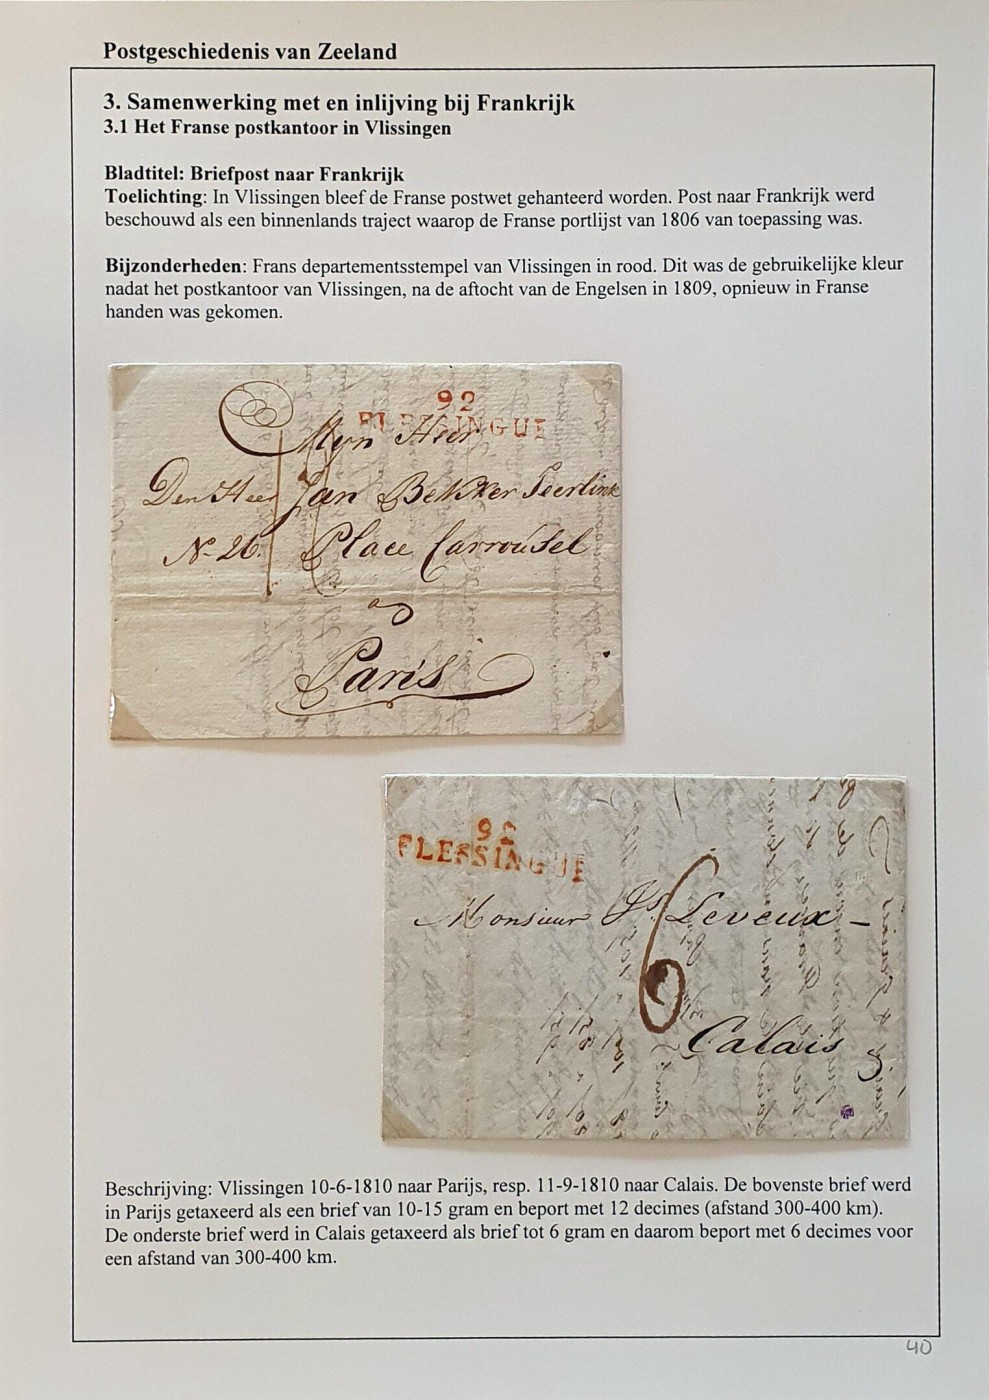 Postgeschiedenis van Zeeland
3. Samenwerking met en inlijving bij Frankrijk
3.1 Het Franse postkantoor in Vlissingen
Bladtitel: Briefpost naar Frankrijk
Toelichting: In Vlissingen bleef de Franse postwet gehanteerd worden. Post naar Frankrijk werd
beschouwd als een binnenlands traject waarop de Franse portlijst van 1806 van toepassing was.
Bijzonderheden: Frans departementsstempel van Vlissingen in rood. Dit was de gebruikelijke kleur
nadat het postkantoor van Vlissingen, na de aftocht van de Engelsen in 1809, opnieuw in Franse
handen was gekomen.
92
FLESSINGUE
Myn Heer
Den Heer Jan Bekker Teerlink
No 26. Place Carrousel
a
Paris
92
FLESSINGUE
Monsieur Js. Leveux
6
Calais
Beschrijving: Vlissingen 10-6-1810 naar Parijs, resp. 11-9-1810 naar Calais. De bovenste brief werd
in Parijs getaxeerd als een brief van 10-15 gram en beport met 12 decimes (afstand 300-400 km).
De onderste brief werd in Calais getaxeerd als brief tot 6 gram en daarom beport met 6 decimes voor
een afstand van 300-400 km.
40